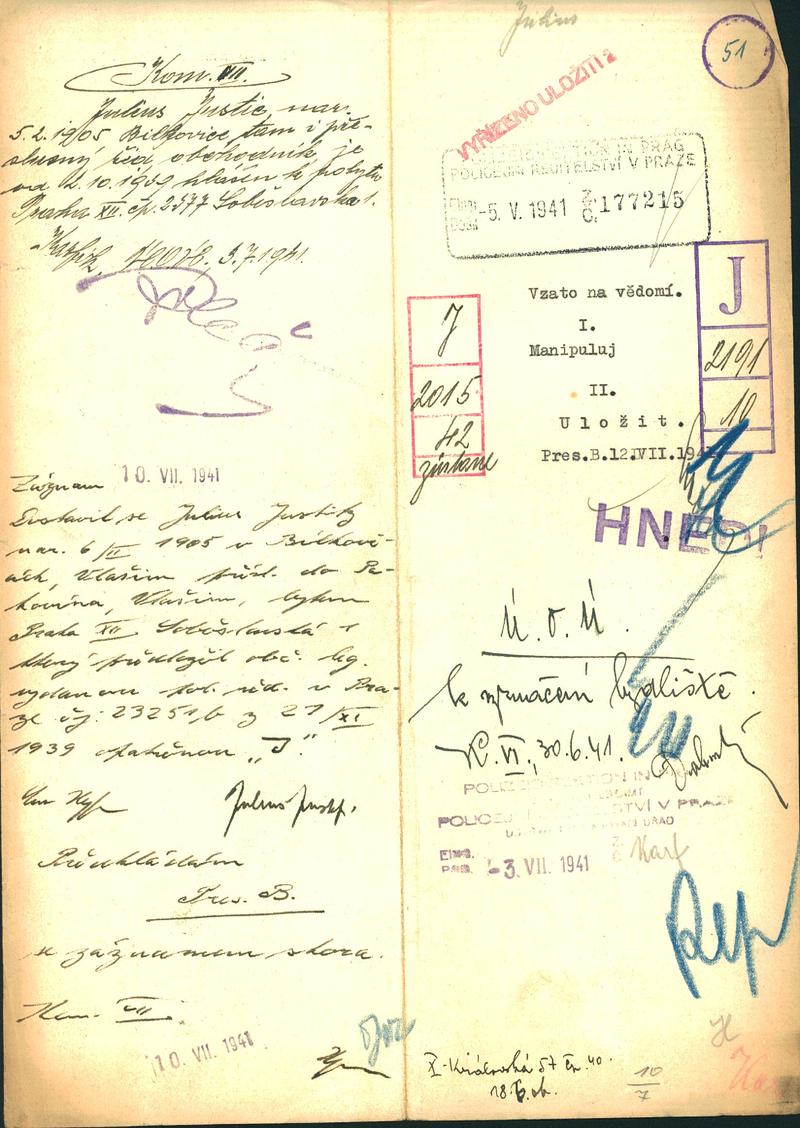 Kom. VII.
Julius Justic, nar.
5.2.1905 Bílkovice, tam i pří-
slušný žid, obchodník je
od 12.10.1939 hlášen k pobytu
Praha XII. čp. 2577 Soběslavská 1.
3.7.1941.
Záznam 10. VII. 1941
Dostavil se Julius Justitz
nar. 6/II 1905 v Bílkovi-
cích, Vlašim přísl. do
Vlašim, bytem
Praha XII Soběslavská 1
který předložil obč. leg.
vydanou pol. řed. v Pra-
ze čj: 23251/b z 27/XI
1939 opatřenou „J."
Julius Justitz.
Předkládám
Pres. B.
se záznamem shora.
Kom. VII.
10. VII. 1941
Julius
51
VYŘÍZENO ULOŽITI 2
POLIZEIDIREKTION IN PRAG
POLICEJNÍ ŘEDITELSTVÍ V PRAZE
EING.
DOŠLO -5. V. 1941 Z.
Č. 177215
Vzato na vědomí.
I.
Manipuluj
II.
Uložit.
Pres.B.12.VII.1941
J
2015
42
zůstane
J
2191
10
HNED!
Ú.o.Ú.
k vyznačení bydliště.
K. VI, 30.6.41.
POLICEJNÍ ŘEDITELSTVÍ V PRAZE
EING. -3. VII. 1941 Z.
Č.
Karf
Rep
X-Královská 57 čp. 40.
18.6. ob.
10
7